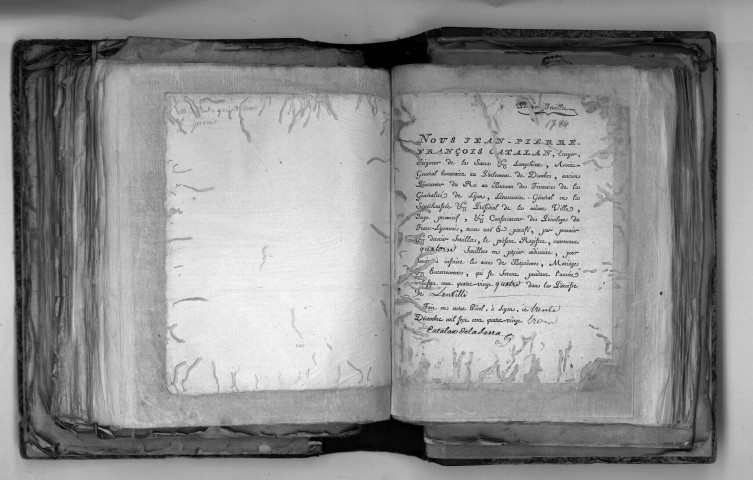 Premier Feuillet
1784
NOUS JEAN-PIERRE-
FRANÇOIS CATALAN, Ecuyer,
Seigneur de la Sarra & Longchene, Avocat-
Général honoraire au Parlement de Dombes, ancien
Procureur du Roi au Bureau des Finances de la
Généralité de Lyon, Lieutenant-Général en la
Sénéchaussée & Présidial de la même Ville,
Juge primitif, & Conservateur des Privileges du
Franc-Lyonnois, avons coté & parafé, par premier
& dernier Feuillet, le présent Registre, contenant
quatorze Feuillets en papier ordinaire, pour
servir à inscrire les actes de Baptêmes, Mariages
& Enterremens, qui se feront pendant l'année
mil sept cent quatre-vingt quatre dans la Paroisse
de Lentilli
Fait en notre Hôtel, à Lyon, le trente
Décembre mil sept cent quatre-vingt trois
Catalan de la Sarra